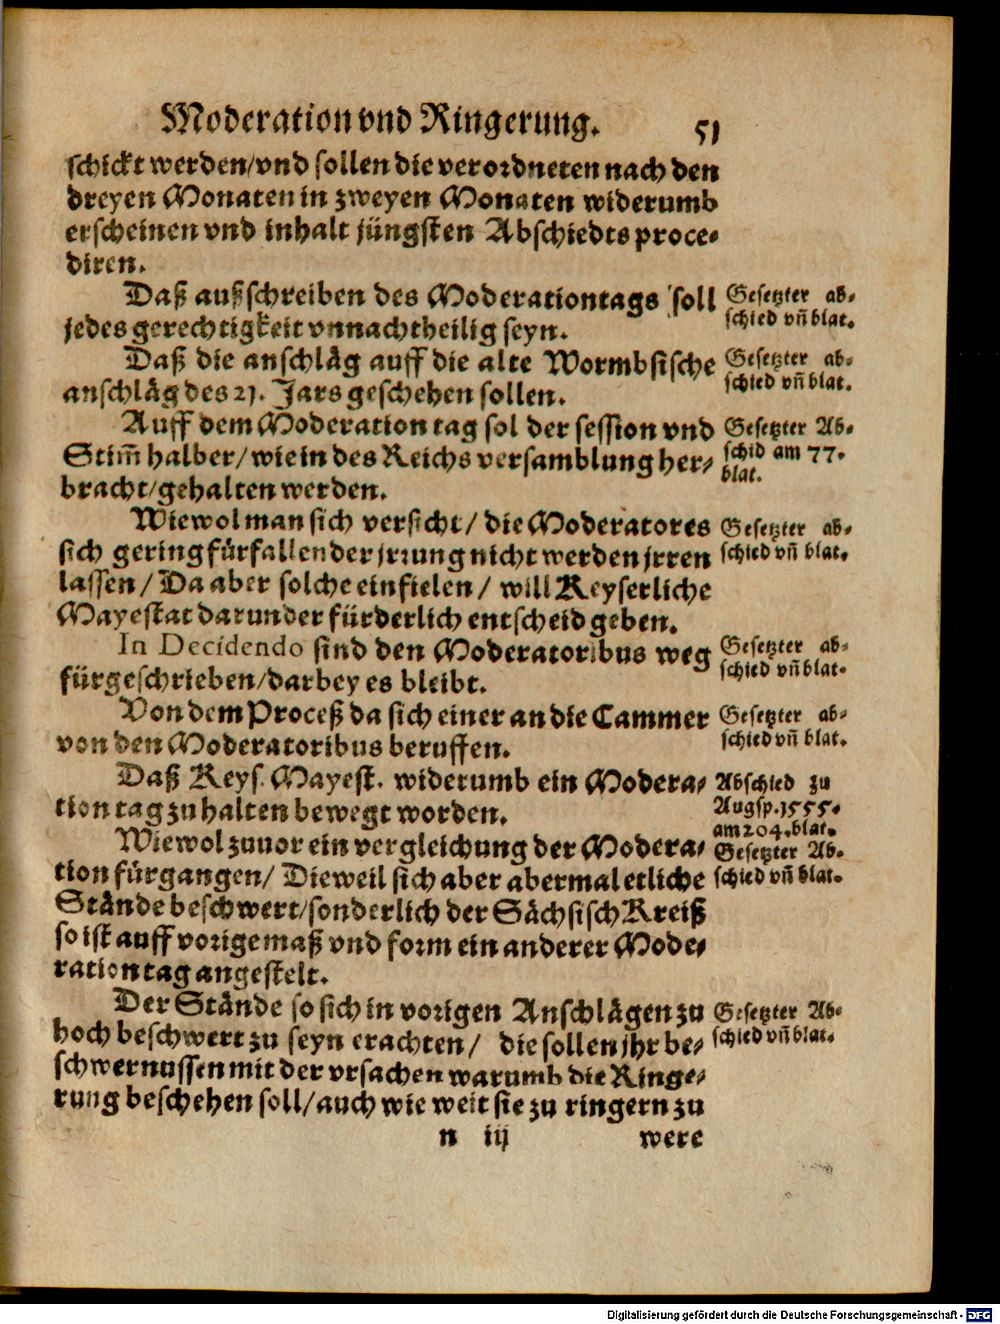 Moderation vnd Ringerung. 51
schickt werden/vnd sollen die verordneten nach den
dreyen Monaten in zweyen Monaten widerumb
erscheinen vnd inhalt jüngsten Abschiedts proce-
diren.
Daß außschreiben des Moderationtags soll
jedes gerechtigkeit vnnachtheilig seyn.
Gesetzter ab-
schied vñ blat.
Daß die anschläg auff die alte Wormbsische
anschläg des 21. Jars geschehen sollen.
Gesetzter ab-
schied vñ blat.
Auff dem Moderation tag sol der session vnd
Stim̃ halber/ wie in des Reichs versamblung her-
bracht/gehalten werden.
Gesetzter Ab-
schid am 77.
blat.
Wiewol man sich versicht/ die Moderatores
sich gering fürfallender jrrung nicht werden jrren
lassen/ Da aber solche einfielen/ will Keyserliche
Mayestat darunder fürderlich entscheid geben.
Gesetzter ab-
schied vñ blat.
In Decidendo sind den Moderatoribus weg
fürgeschrieben/darbey es bleibt.
Gesetzter ab-
schied vñ blat.
Von dem Proceß da sich einer an die Cammer
von den Moderatoribus beruffen.
Gesetzter ab-
schied vñ blat.
Daß Keys. Mayest. widerumb ein Modera-
tion tag zu halten bewegt worden.
Abschied zu
Augsp. 1555.
am 204. blat.
Wiewol zuuor ein vergleichung der Modera-
tion fürgangen/ Dieweil sich aber abermal etliche
Stände beschwert/sonderlich der Sächsisch Kreiß
so ist auff vorige maß vnd form ein anderer Mode-
ration tag angestelt.
Gesetzter Ab-
schied vñ blat.
Der Stände so sich in vorigen Anschlägen zu
hoch beschwert zu seyn erachten/ die sollen jhr be-
schwernussen mit der vrsachen warumb die Ringe-
rung beschehen soll/auch wie weit sie zu ringern zu
Gesetzter Ab-
schied vñ blat.
n iij were
Digitalisierung gefördert durch die Deutsche Forschungsgemeinschaft - DFG